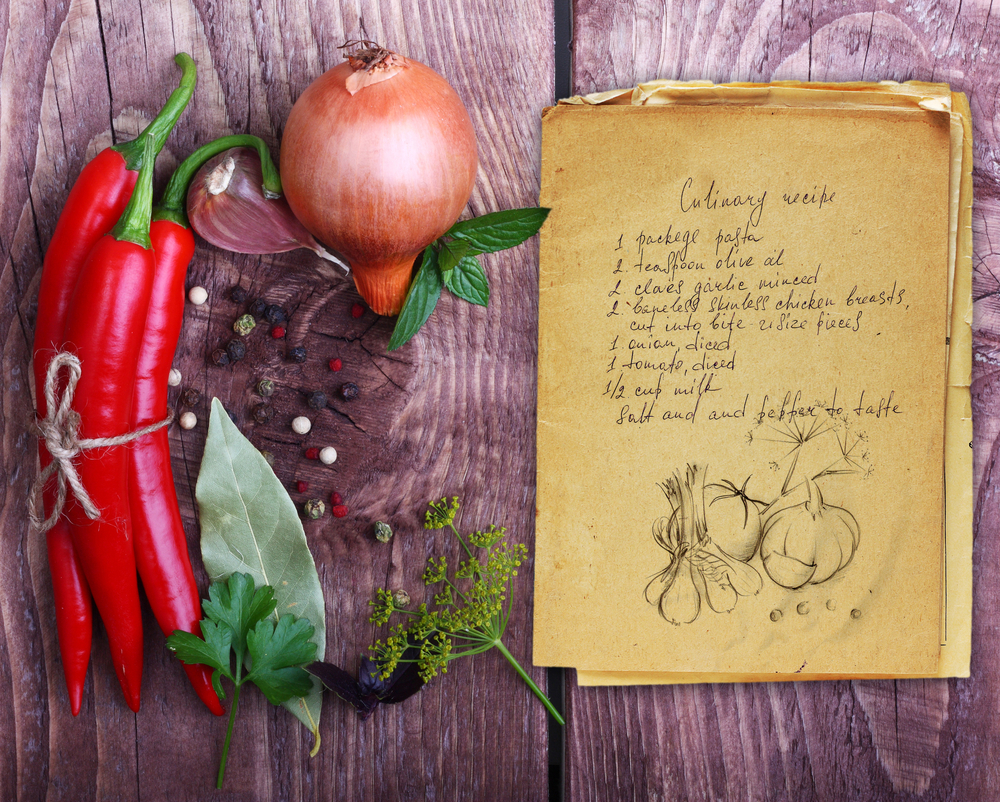 Culinary recipe
1 packege pasta
2. teaspoon olive oil
2 cloves garlic minced
2. boneless skinless chicken breasts,
cut into bite-size pieces
1 onion, diced
1 tomato, diced
1/2 cup milk
Salt and and pepper to taste